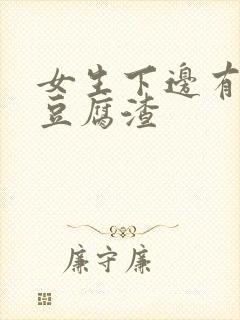 女生下邊有
豆腐渣
廉守廉